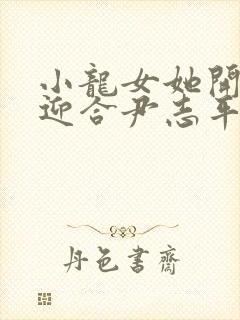 小龍女她開
迎合尹志平
丹色書齋